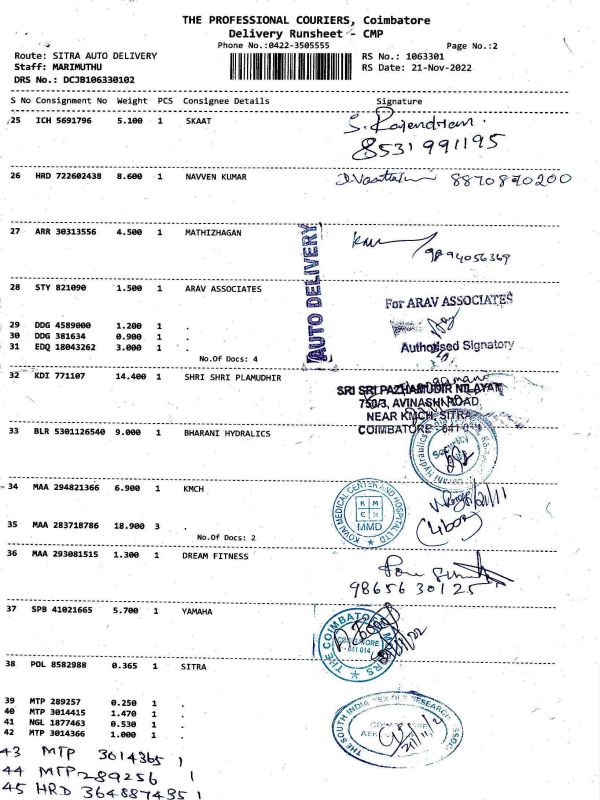 THE PROFESSIONAL COURIERS, Coimbatore
Delivery Runsheet - CMP
Phone No.:0422-3505555 Page No.:2
Route: SITRA AUTO DELIVERY RS No.: 1063301
Staff: MARIMUTHU RS Date: 21-Nov-2022
DRS No.: DCJB106330102
S No Consignment No Weight PCS Consignee Details Signature
25 ICH 5691796 5.100 1 SKAAT S. Rajendran.
8531991195
26 HRD 722602438 8.600 1 NAVVEN KUMAR 8870870200
27 ARR 30313556 4.500 1 MATHIZHAGAN
9894056369
AUTO DELIVERY
28 STY 821090 1.500 1 ARAV ASSOCIATES
For ARAV ASSOCIATES
29 DDG 4589000 1.200 1 .
30 DDG 381634 0.900 1 .
31 EDQ 18043262 3.000 1 .
Authorised Signatory
No.Of Docs: 4
32 KDI 771107 14.400 1 SHRI SHRI PLAMUDHIR
SRI SRI PAZHAMUDIR NILAYAM
750/3, AVINASHI ROAD,
NEAR KMCH, SITRA
COIMBATORE - 641 014
33 BLR 5301126540 9.000 1 BHARANI HYDRALICS
Bharani Hydraulics
34 MAA 294821366 6.900 1 KMCH
KOVAI MEDICAL CENTER AND HOSPITAL LTD
K M
C H
MMD
35 MAA 283718786 18.900 3 .
No.Of Docs: 2
36 MAA 293081515 1.300 1 DREAM FITNESS
9865630125
37 SPB 41021665 5.700 1 YAMAHA
THE COIMBATORE MOTORS
COIMBATORE
- 641 014
38 POL 8582988 0.365 1 SITRA
39 MTP 289257 0.250 1 .
40 MTP 3014415 1.470 1 .
41 NGL 1877463 0.530 1 .
42 MTP 3014366 1.000 1 .
THE SOUTH INDIA TEXTILE RESEARCH ASSOC.
43 MTP 3014365 1
44 MTP 289256 1
45 HRD 364887435 1